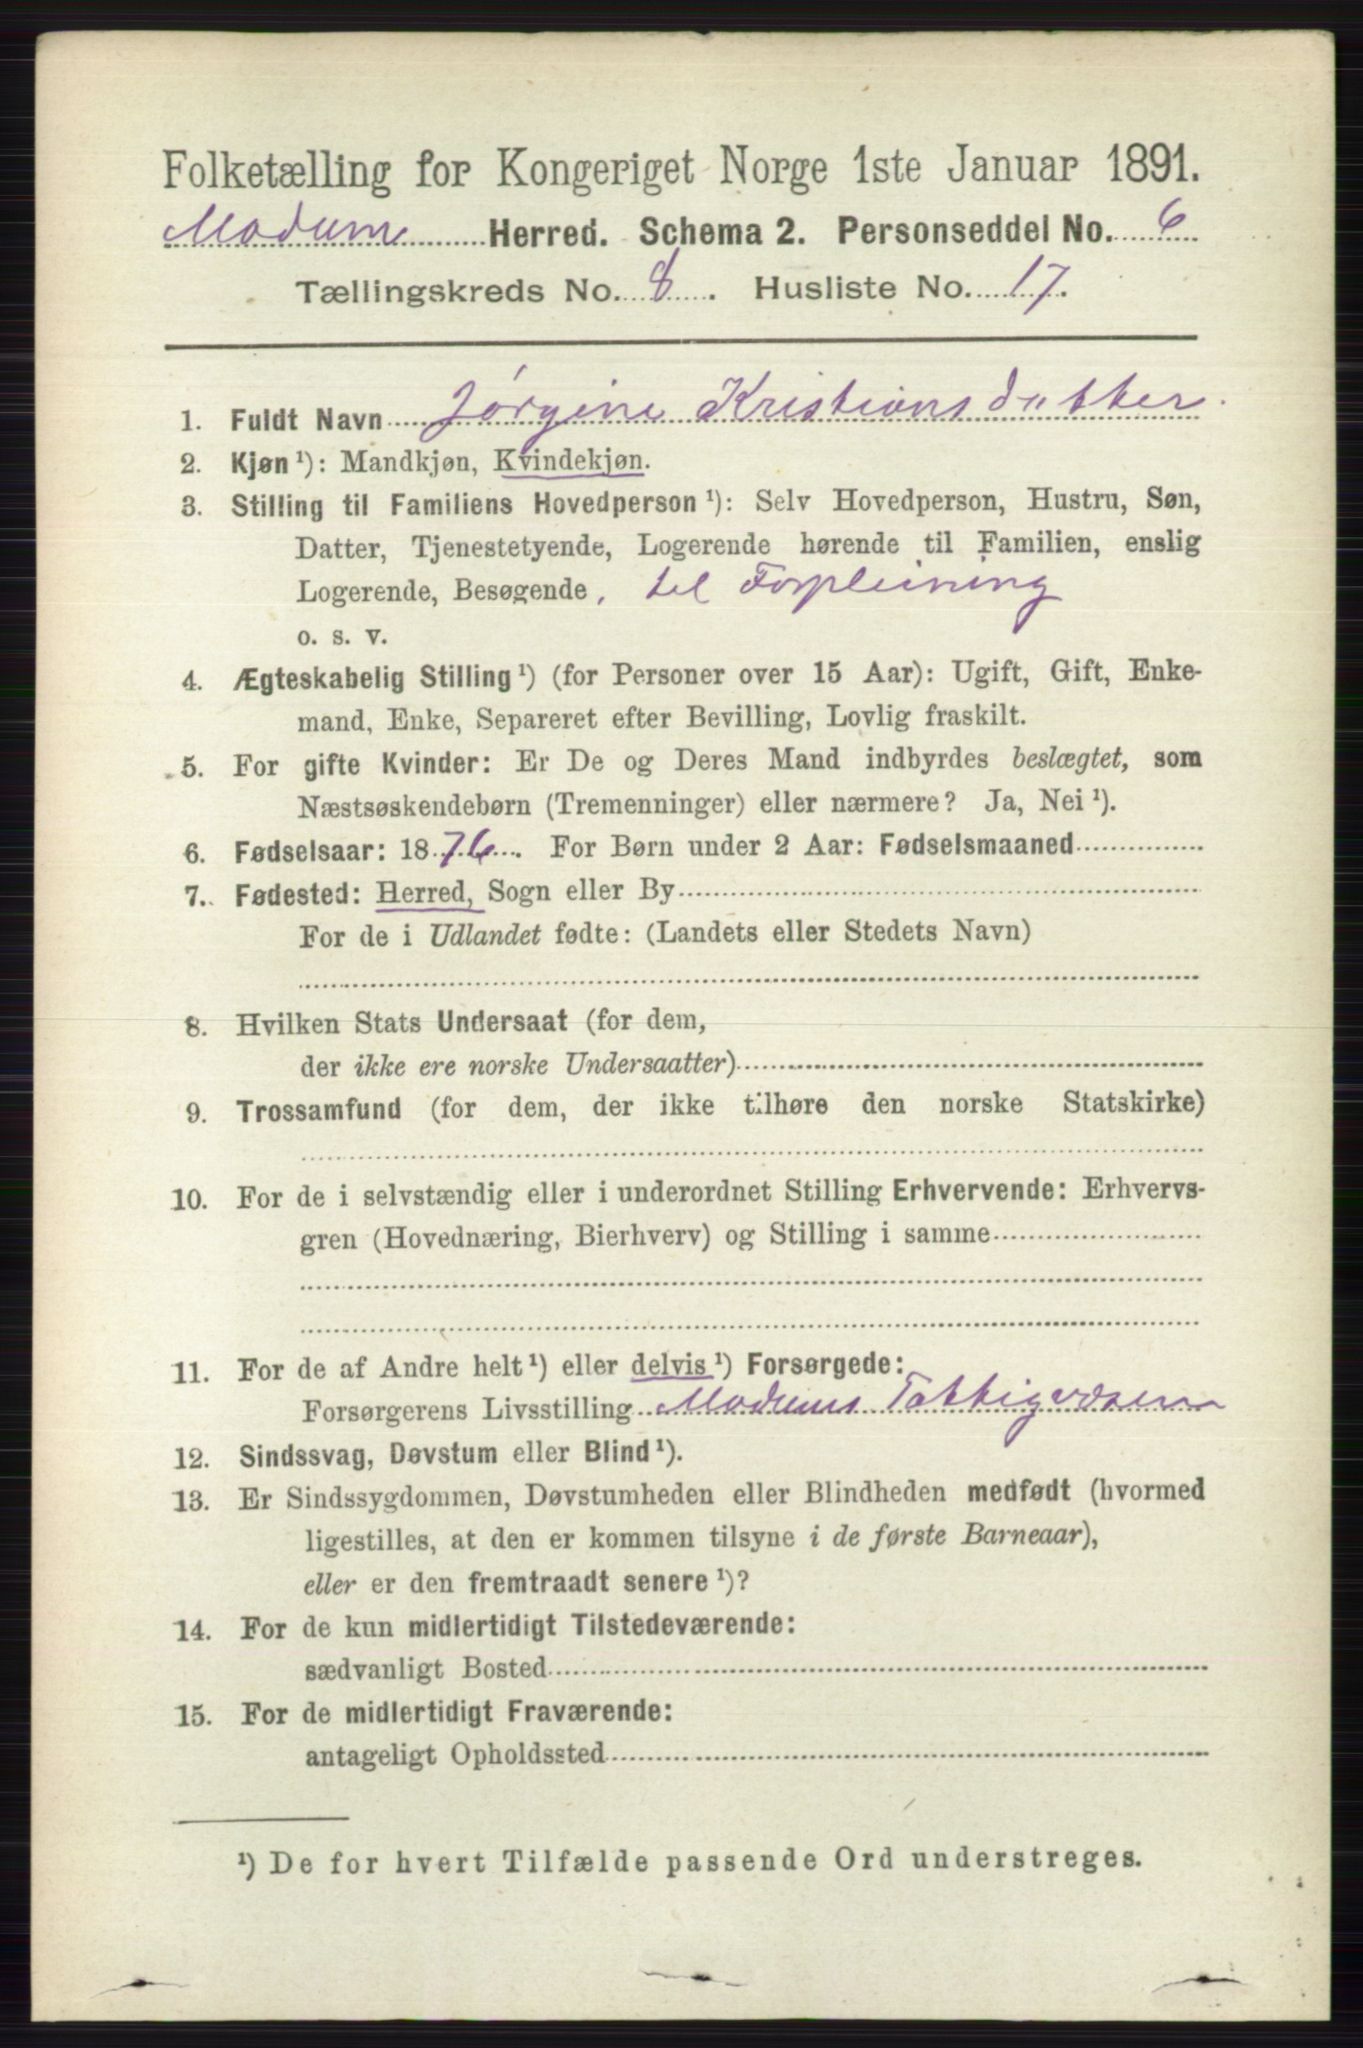 Folketælling for Kongeriget Norge 1ste Januar 1891.
Modum Herred. Schema 2. Personseddel No. 6
Tællingskreds No. 8. Husliste No. 17.
1. Fuldt Navn Jørgine Kristiansdatter
2. Kjøn ¹): Mandkjøn, Kvindekjøn.
3. Stilling til Familiens Hovedperson ¹): Selv Hovedperson, Hustru, Søn,
Datter, Tjenestetyende, Logerende hørende til Familien, enslig
Logerende, Besøgende, til Forpleining
o. s. v.
4. Ægteskabelig Stilling ¹) (for Personer over 15 Aar): Ugift, Gift, Enke-
mand, Enke, Separeret efter Bevilling, Lovlig fraskilt.
5. For gifte Kvinder: Er De og Deres Mand indbyrdes beslægtet, som
Næstsøskendebørn (Tremenninger) eller nærmere? Ja, Nei ¹).
6. Fødselsaar: 1876. For Børn under 2 Aar: Fødselsmaaned
7. Fødested: Herred, Sogn eller By
For de i Udlandet fødte: (Landets eller Stedets Navn)
8. Hvilken Stats Undersaat (for dem,
der ikke ere norske Undersaatter)
9. Trossamfund (for dem, der ikke tilhøre den norske Statskirke)
10. For de i selvstændig eller i underordnet Stilling Erhvervende: Erhvervs-
gren (Hovednæring, Bierhverv) og Stilling i samme
11. For de af Andre helt ¹) eller delvis ¹) Forsørgede:
Forsørgerens Livsstilling Modums Fattigvæsen
12. Sindssvag, Døvstum eller Blind ¹).
13. Er Sindssygdommen, Døvstumheden eller Blindheden medfødt (hvormed
ligestilles, at den er kommen tilsyne i de første Barneaar),
eller er den fremtraadt senere ¹)?
14. For de kun midlertidigt Tilstedeværende:
sædvanligt Bosted
15. For de midlertidigt Fraværende:
antageligt Opholdssted
¹) De for hvert Tilfælde passende Ord understreges.